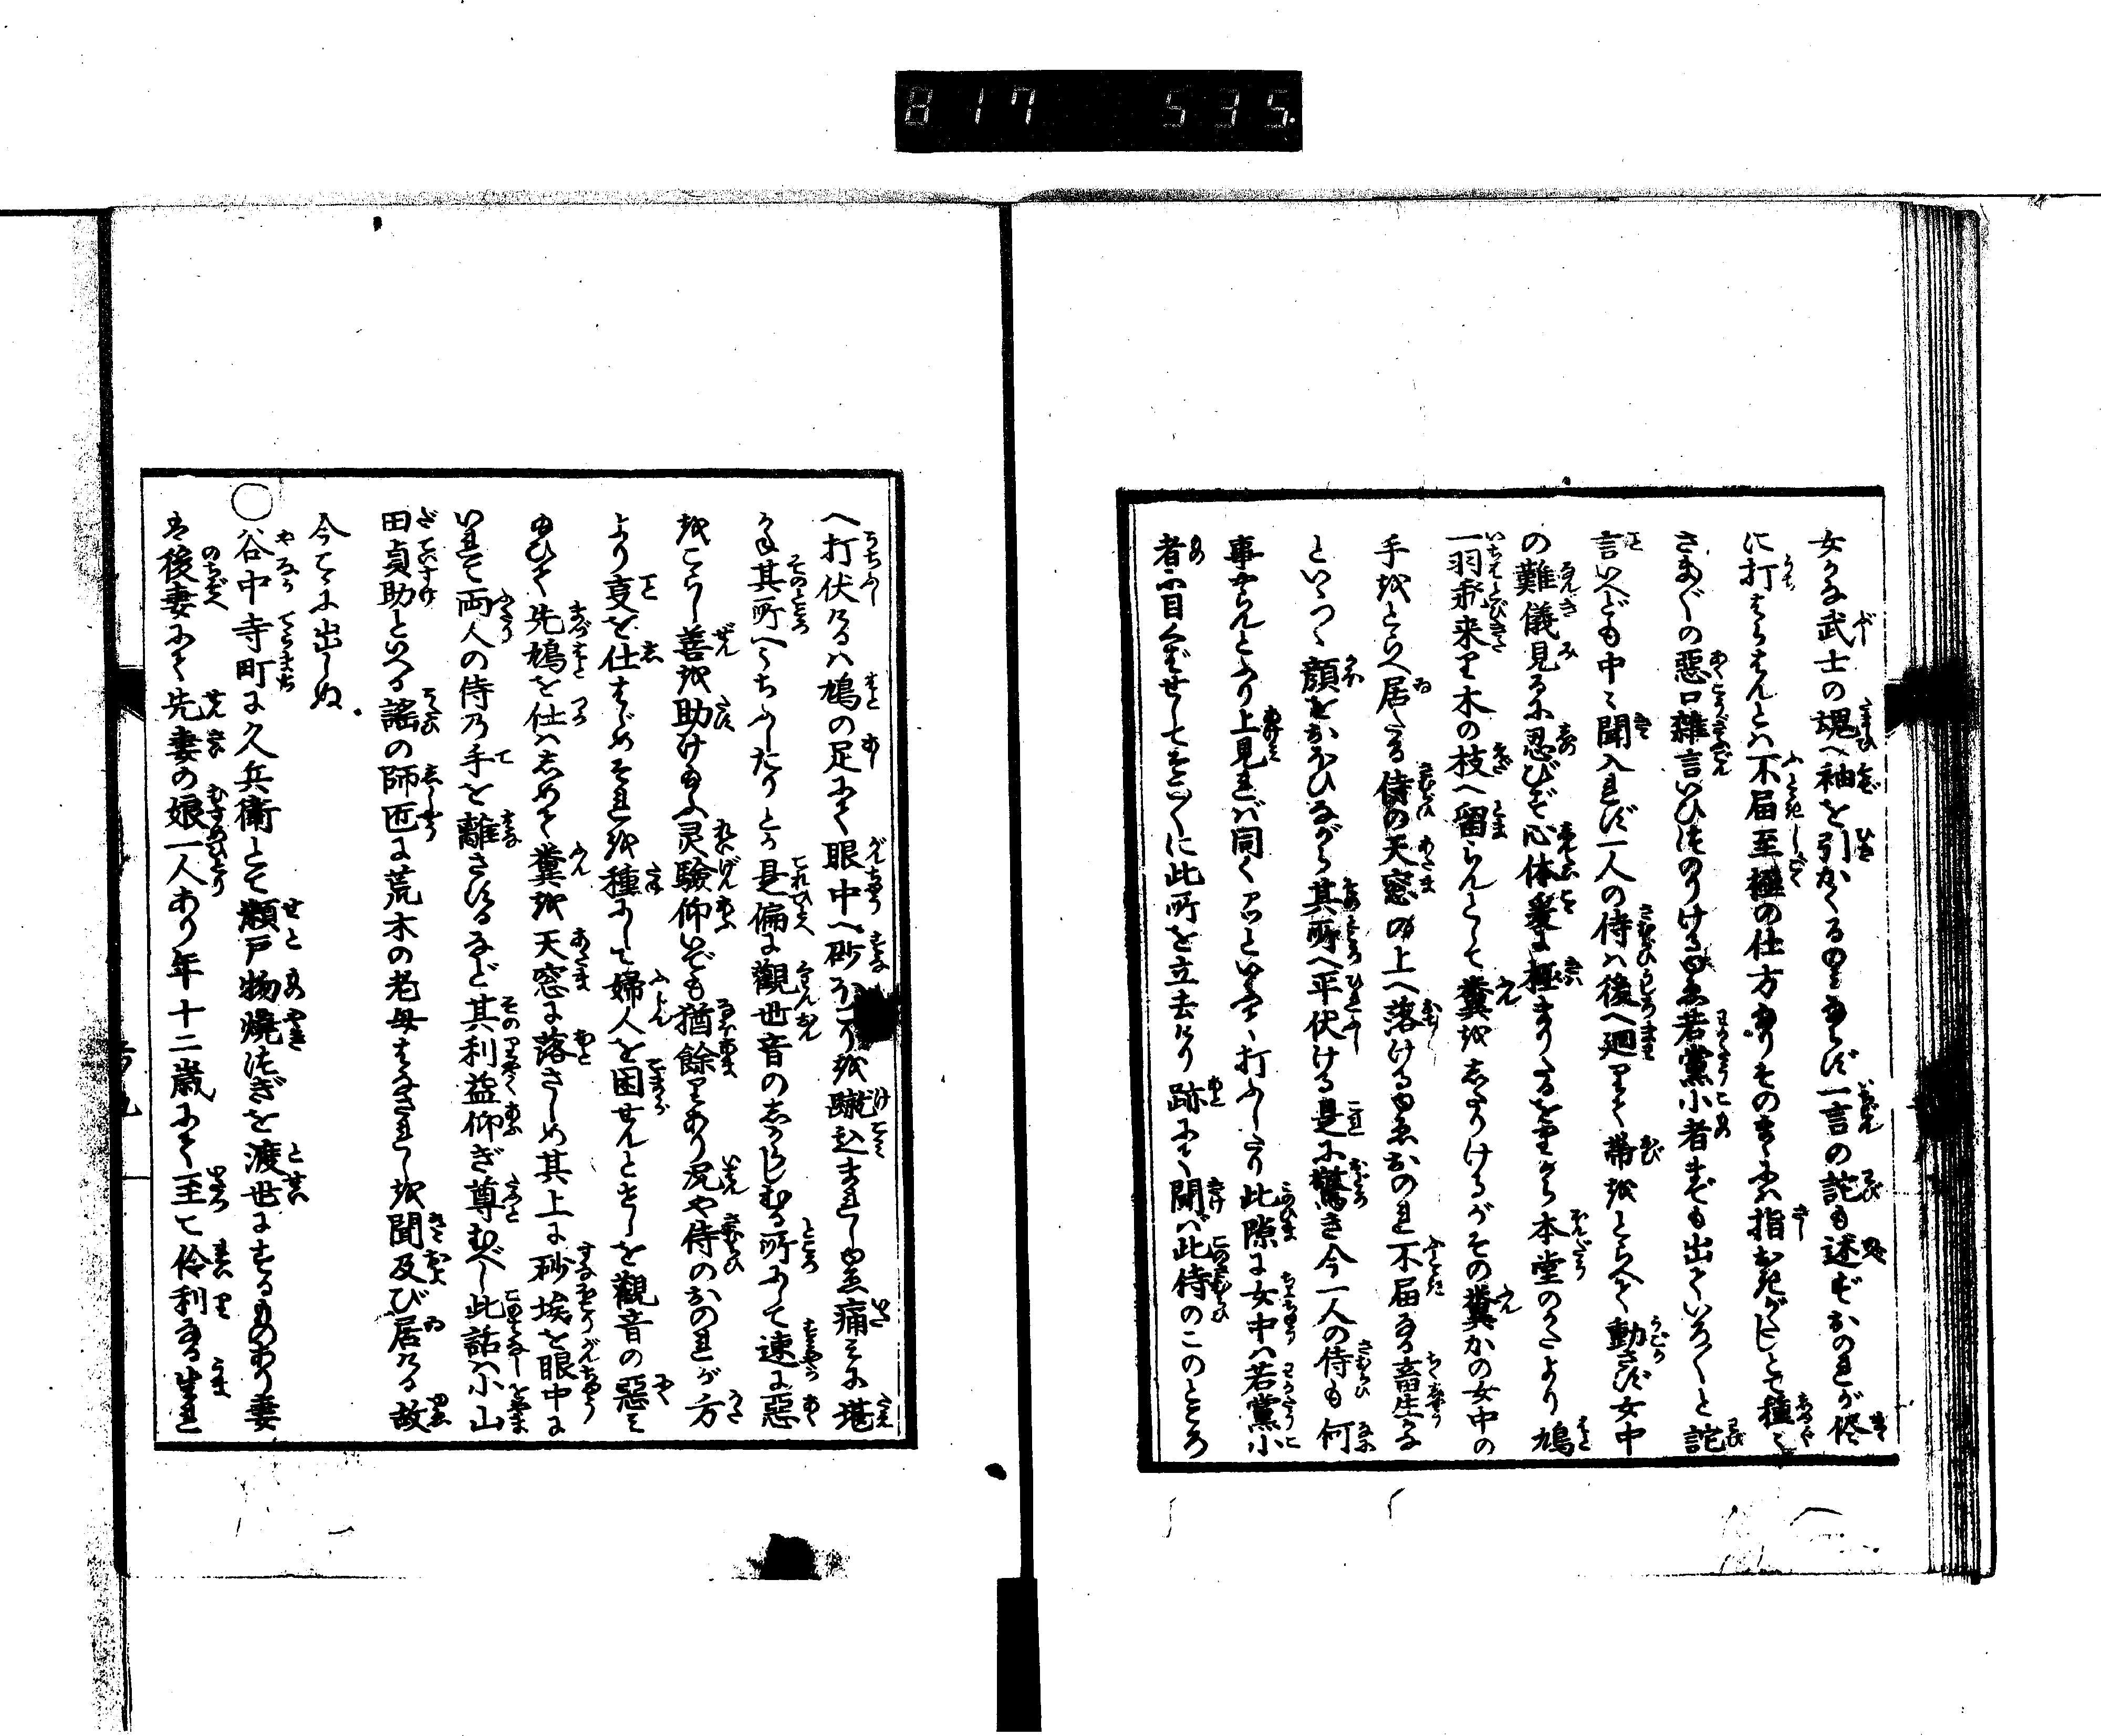 817 535.
女うな武士の魂へ袖を引かくるのミならず一言の詫も述ずおのれが侭
に打すてんとハ不届至極の仕方なりそのまゝにハ指おきがたしとて種々
さまざまの悪口雑言いひつのりけるゆゑ若黨小者までも出ていろ〳〵と詫
言いへども中々聞入れず一人の侍ハ後へ廻りて帯をとらへて動さず女中
の難儀見るに忍びず心体爰に極まりたる折から本堂のかたより鳩
一羽飛来り木の枝へ留らんとして糞をしたりけるがその糞かの女中の
手をとらへ居たる侍の天窓の上へ落けるゆゑおのれ不届なる畜生かな
といひつゝ顔をおほひながら其所へ平伏ける是に驚き今一人の侍も何
事ならんとふり上見れバ同くアツといひつゝ打ふしたり此隙に女中ハ若黨小
者に目くばせしてそこ〳〵に此所を立去けり跡にて聞バ此侍のこのところ
へ打伏けるハ鳩の足にて眼中へ砂ほこりを蹴込まれしゆゑ痛ミに堪
かね其所へうちふしたりとか是偏に觀世音のしからしむる所にして速に惡
をこらし善を助け給ふ灵驗仰ぐも猶餘りあり况や侍のおのれが方
より㕝を仕はじめそれを種にして婦人を困せんとせしを觀音の惡ミ
給ひて先鳩を仕ハしめて糞を天窓に落さしめ其上に砂埃を眼中に
いれて両人の侍の手を離さするなど其利益仰ぎ尊むべし此話ハ小山
田貞助といへる謡の師匠に荒木の老母はなされしを聞及び居ける故
今こゝに出しぬ
○谷中寺町に久兵衛とて瀬戸物焼つぎを渡世にするものあり妻
ハ後妻にて先妻の娘一人あり年十二歳にて至て伶利なる生れ